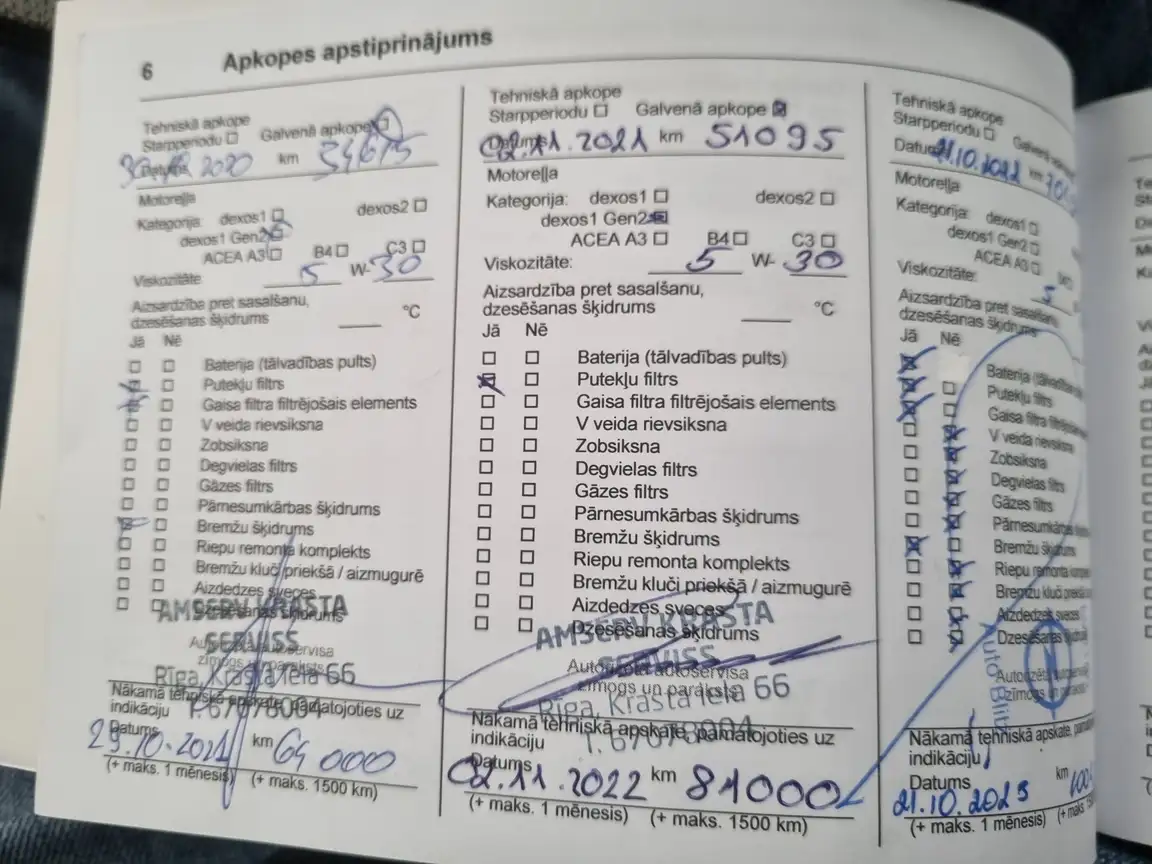 6 Apkopes apstiprinājums
Tehniskā apkope
Starpperiodu Galvenā apkope
2020 km 34615
Motoreļļa
Kategorija: dexos1 dexos2
dexos1 Gen2
ACEA A3 B4 C3
Viskozitāte 5 W-30
Aizsardzība pret sasalšanu,
dzesēšanas šķidrums °C
Jā Nē
Baterija (tālvadības pults)
Putekļu filtrs
Gaisa filtra filtrējošais elements
V veida rievsiksna
Zobsiksna
Degvielas filtrs
Gāzes filtrs
Pārnesumkārbas šķidrums
Bremžu šķidrums
Riepu remonta komplekts
Bremžu kluči priekšā / aizmugurē
Aizdedzes sveces
Dzesēšanas šķidrums
AMSERV KRASTA
SERVISS
Autorizēta autoservisa
zīmogs un paraksts
Rīga, Krasta iela 66
T. 67078004
Nākamā tehniskā apskate, pamatojoties uz
indikāciju
Datums
29.10.2021 km 64000
(+ maks. 1 mēnesis) (+ maks. 1500 km)
Tehniskā apkope
Starpperiodu Galvenā apkope
Datums 02.11.2021 km 51095
Motoreļļa
Kategorija: dexos1 dexos2
dexos1 Gen2
ACEA A3 B4 C3
Viskozitāte: 5 W- 30
Aizsardzība pret sasalšanu,
dzesēšanas šķidrums °C
Jā Nē
Baterija (tālvadības pults)
Putekļu filtrs
Gaisa filtra filtrējošais elements
V veida rievsiksna
Zobsiksna
Degvielas filtrs
Gāzes filtrs
Pārnesumkārbas šķidrums
Bremžu šķidrums
Riepu remonta komplekts
Bremžu kluči priekšā / aizmugurē
Aizdedzes sveces
Dzesēšanas šķidrums
AMSERV KRASTA
SERVISS
Autorizēta autoservisa
zīmogs un paraksts
Rīga, Krasta iela 66
T. 67078004
Nākamā tehniskā apskate, pamatojoties uz
indikāciju
Datums
02.11.2022 km 81000
(+ maks. 1 mēnesis) (+ maks. 1500 km)
Tehniskā apkope
Starpperiodu Galvenā
Datums 21.10.2022 km
Motoreļļa
Kategorija: dexos1
dexos1 Gen2
ACEA A3
Viskozitāte: 5
Aizsardzība pret sasalšanu,
dzesēšanas šķidrums
Jā Nē
Baterija
Putekļu filtrs
Gaisa filtra
V veida rievsiksna
Zobsiksna
Degvielas filtrs
Gāzes filtrs
Bremžu šķidrums
Riepu remonta
Bremžu kluči
Aizdedzes sveces
Auto Blitz
Nākamā tehniskā apskate,
indikāciju
Datums km
21.10.2023
(+ maks. 1 mēnesis) (+ maks.